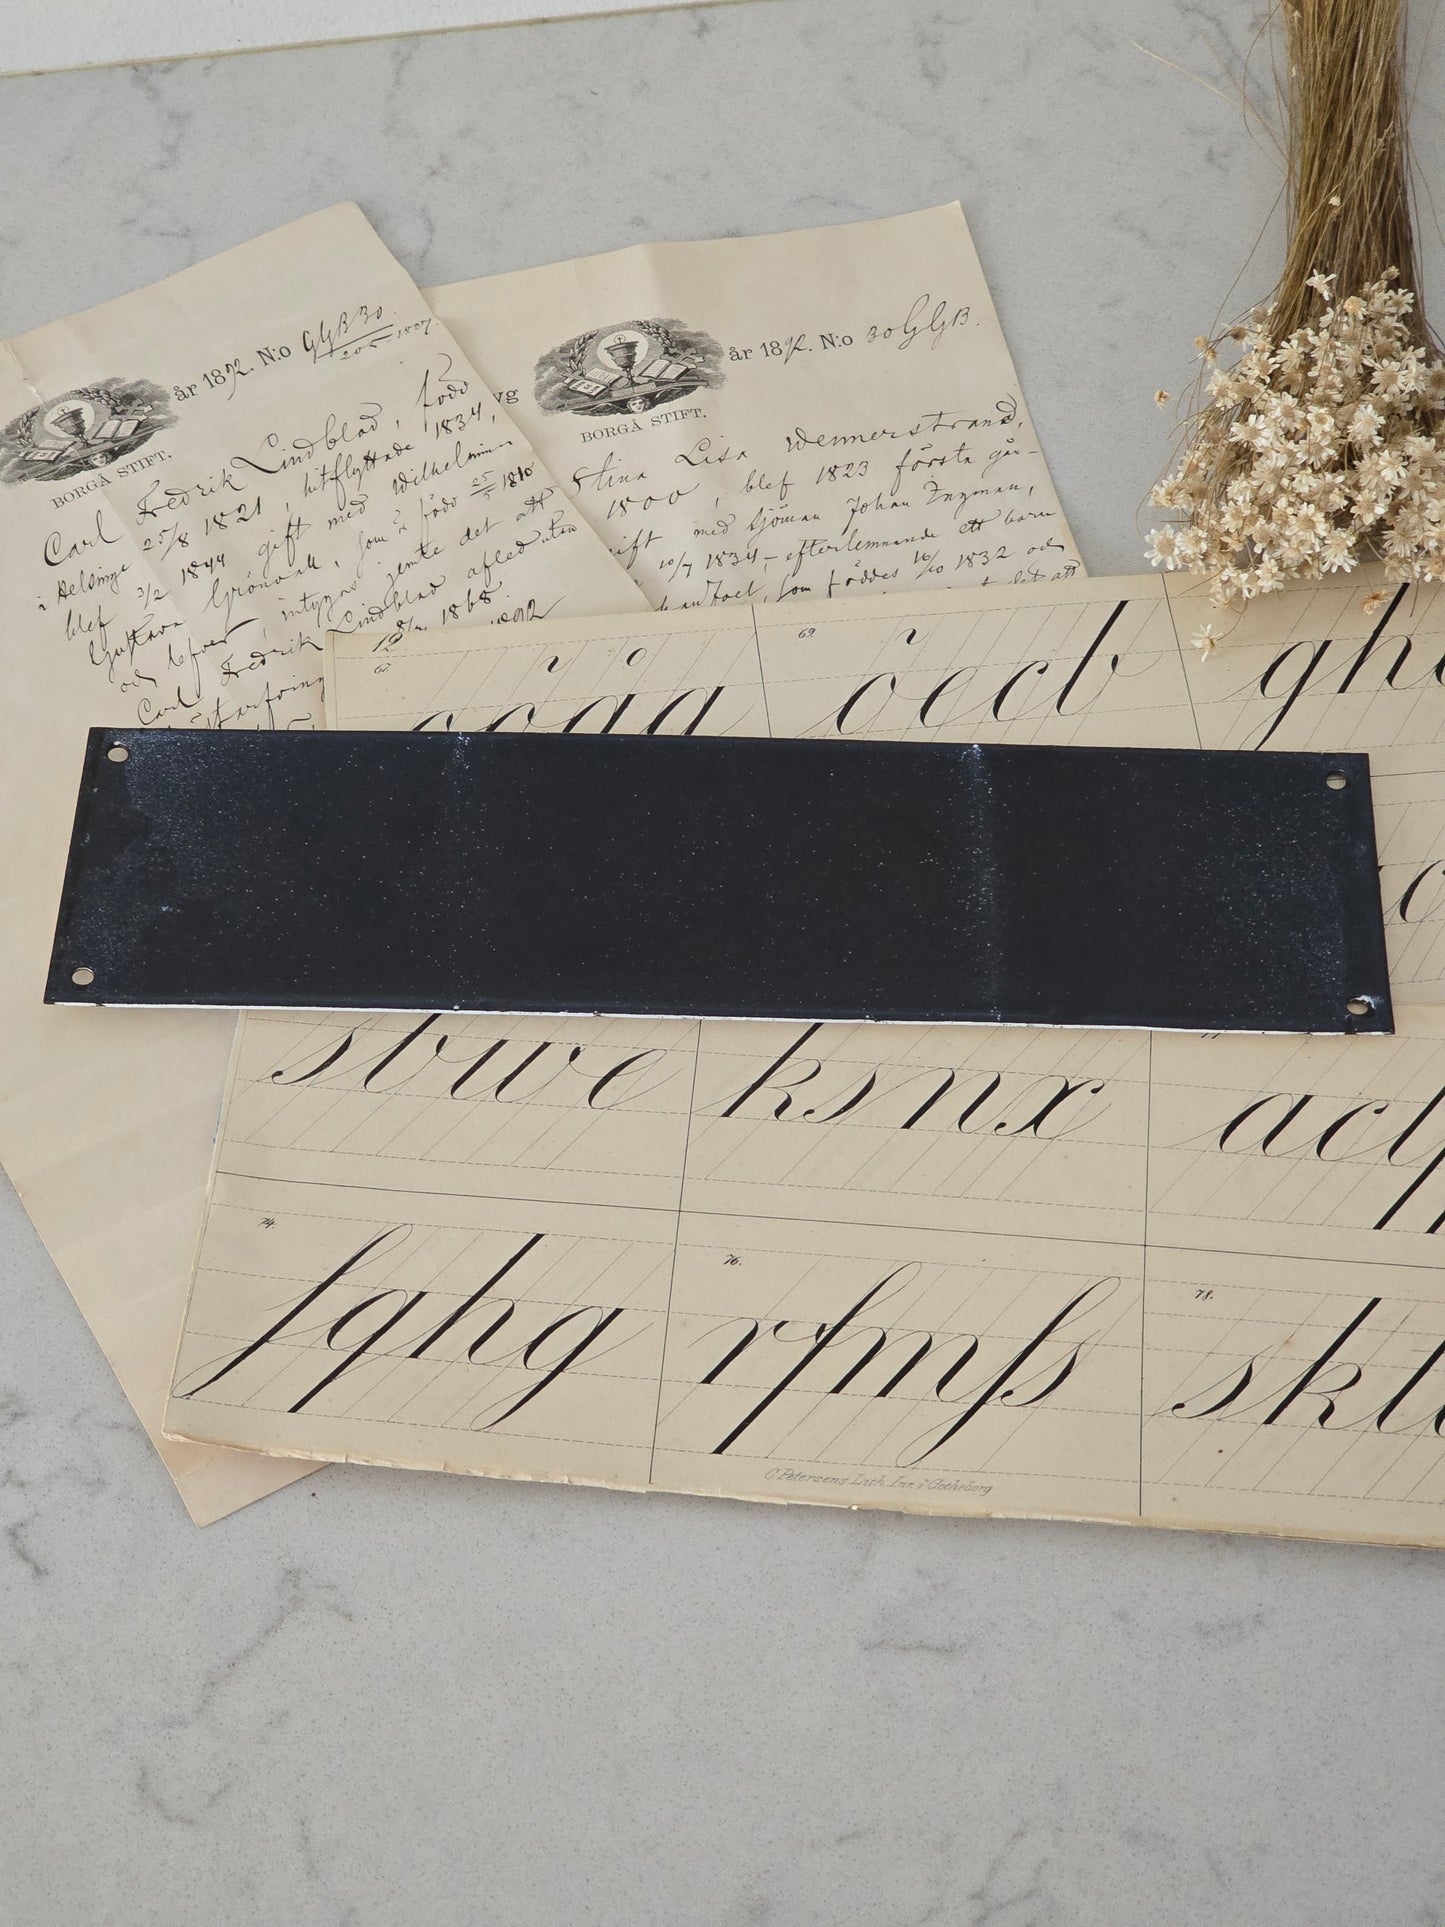 år 1892. N:o GGB 30.
205 1897.
BORGÅ STIFT.
Carl Fredrik Lindblad, född
25/8 1821, hitflyttade 1834,
i Helsinge
blef 3/2 1844 gift med Wilhelmina
Gustava Grönvall, som är född 25/5 1810
och lefver, intygas jemte det att
Carl Fredrik Lindblad afled utan
1868.
1892
år 1892. N:o 30 GGB.
BORGÅ STIFT.
Stina Lisa Wennerstrand,
1800, blef 1823 första gån-
gift med Sjöman Johan Ingman,
10/7 1834, efterlemnande ett barn
som föddes 16/10 1832 och
det att
o o å a
69
ö e c b
g h
s t w e
k s n x
a c
74.
f q h g
76.
r f m ſs
78.
s k t
C. Petersens Lith. Inr. i Götheborg